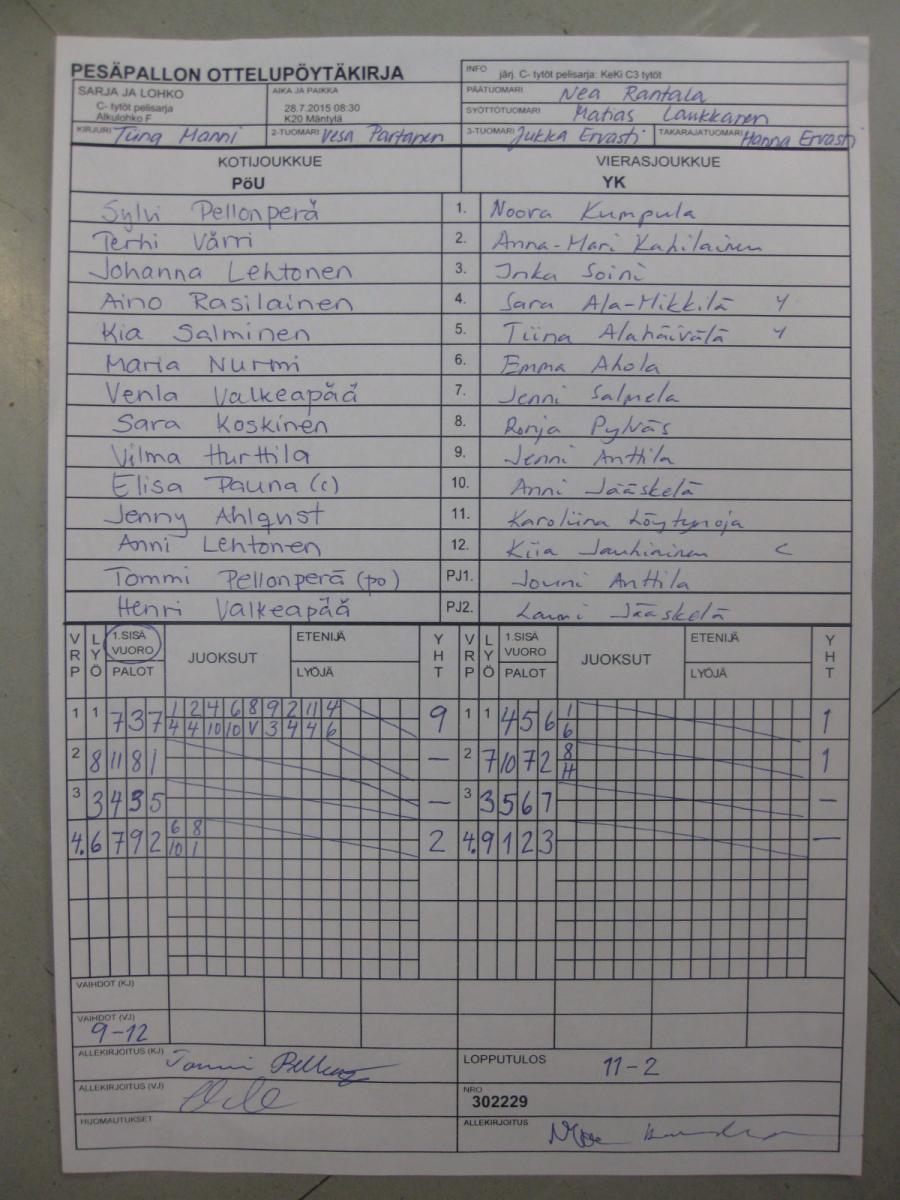 PESÄPALLON OTTELUPÖYTÄKIRJA
INFO järj. C- tytöt pelisarja: KeKi C3 tytöt
SARJA JA LOHKO
C- tytöt pelisarja
Alkulohko F
AIKA JA PAIKKA
28.7.2015 08:30
K20 Mäntylä
PÄÄTUOMARI Nea Rantala
SYÖTTÖTUOMARI Matias Laukkanen
KIRJURI Tiina Manni 2-TUOMARI Vesa Partanen 3-TUOMARI Jukka Ervasti TAKARAJATUOMARI Hanna Ervasti
KOTIJOUKKUE VIERASJOUKKUE
PöU YK
Sylvi Pellonperä 1. Noora Kumpula
Terhi Värri 2. Anna-Mari Kahilainen
Johanna Lehtonen 3. Inka Soini
Aino Rasilainen 4. Sara Ala-Mikkilä Y
Kia Salminen 5. Tiina Alahäivälä Y
Maria Nurmi 6. Emma Ahola
Venla Valkeapää 7. Jenni Salmela
Sara Koskinen 8. Ronja Pylväs
Vilma Hurttila 9. Jenni Anttila
Elisa Pauna (c) 10. Anni Jääskelä
Jenny Ahlqvist 11. Karoliina Löytynoja
Anni Lehtonen 12. Kiia Jauhiainen C
Tommi Pellonperä (po) PJ1. Jouni Anttila
Henri Valkeapää PJ2. Lauri Jääskelä
VRP LYÖ 1.SISÄ VUORO PALOT JUOKSUT ETENIJÄ LYÖJÄ YHT VRP LYÖ 1.SISÄ VUORO PALOT JUOKSUT ETENIJÄ LYÖJÄ YHT
1 1 7 3 7 1 2 4 6 8 9 2 11 4 9 1 1 4 5 6 1 1
4 4 10 10 V 3 4 4 6 6
2 8 11 8 1 — 2 7 10 7 2 8 1
H
3 3 4 3 5 — 3 3 5 6 7 —
4. 6 7 9 2 6 8 2 4. 9 1 2 3 —
10 1
VAIHDOT (KJ)
VAIHDOT (VJ)
9-12
ALLEKIRJOITUS (KJ) LOPPUTULOS 11-2
ALLEKIRJOITUS (VJ) NRO
302229
HUOMAUTUKSET ALLEKIRJOITUS